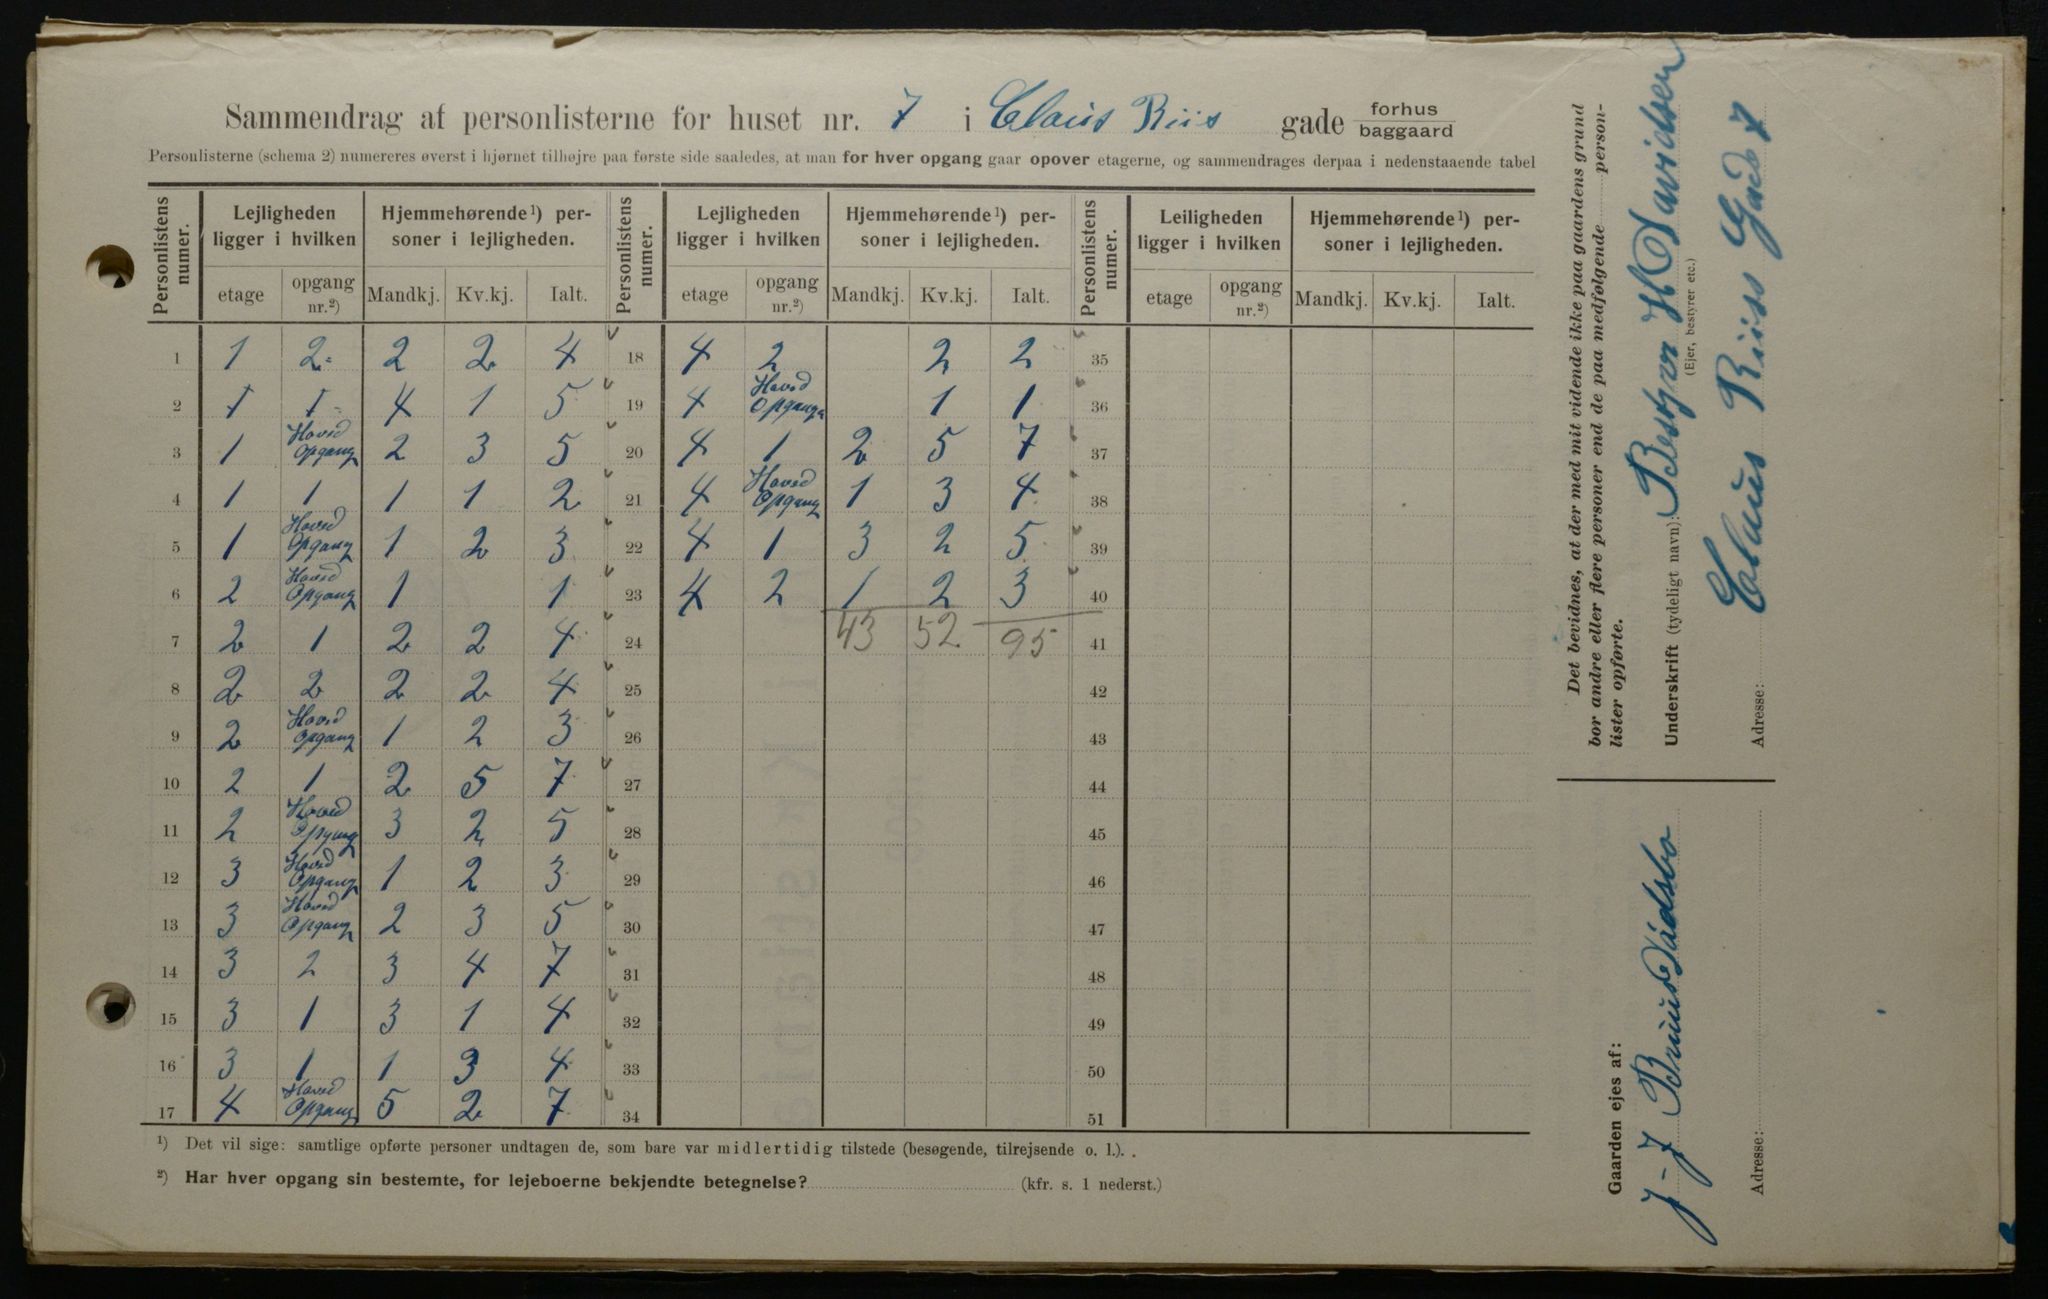 Sammendrag af personlisterne for huset nr. 7 i Claus Riis gade forhus baggaard
Personlisterne (schema 2) numereres øverst i hjørnet tilhøjre paa første side saaledes, at man for hver opgang gaar opover etagerne, og sammendrages derpaa i nedenstaaende tabel
Personlistens numer. Lejligheden ligger i hvilken Hjemmehørende¹) personer i lejligheden. Personlistens numer. Lejligheden ligger i hvilken Hjemmehørende¹) personer i lejligheden. Personlistens numer. Leiligheden ligger i hvilken Hjemmehørende¹) personer i lejligheden.
etage opgang nr.²) Mandkj. Kv.kj. Ialt. etage opgang nr.²) Mandkj. Kv.kj. Ialt. etage opgang nr.²) Mandkj. Kv.kj. Ialt.
1 1 2 2 2 4 18 4 2 2 2 35
2 1 1 4 1 5 19 4 Hoved Opgang 1 1 36
3 1 Hoved Opgang 2 3 5 20 4 1 2 5 7 37
4 1 1 1 1 2 21 4 Hoved Opgang 1 3 4 38
5 1 Hoved Opgang 1 2 3 22 4 1 3 2 5 39
6 2 Hoved Opgang 1 1 23 4 2 1 2 3 40
7 2 1 2 2 4 24 43 52 95 41
8 2 2 2 2 4 25 42
9 2 Hoved Opgang 1 2 3 26 43
10 2 1 2 5 7 27 44
11 2 Hoved Opgang 3 2 5 28 45
12 3 Hoved Opgang 1 2 3 29 46
13 3 Hoved Opgang 2 3 5 30 47
14 3 2 3 4 7 31 48
15 3 1 3 1 4 32 49
16 3 1 1 3 4 33 50
17 4 Hoved Opgang 5 2 7 34 51
¹) Det vil sige: samtlige opførte personer undtagen de, som bare var midlertidig tilstede (besøgende, tilrejsende o. l.).
²) Har hver opgang sin bestemte, for lejeboerne bekjendte betegnelse? (kfr. s. 1 nederst.)
Det bevidnes, at der med mit vidende ikke paa gaardens grund
bor andre eller flere personer end de paa medfølgende personlister opførte.
Underskrift (tydeligt navn): Bestyr H Davidsen
(Ejer, bestyrer etc.)
Adresse: Claus Riiss Gade 7
Gaarden ejes af:
Adresse: